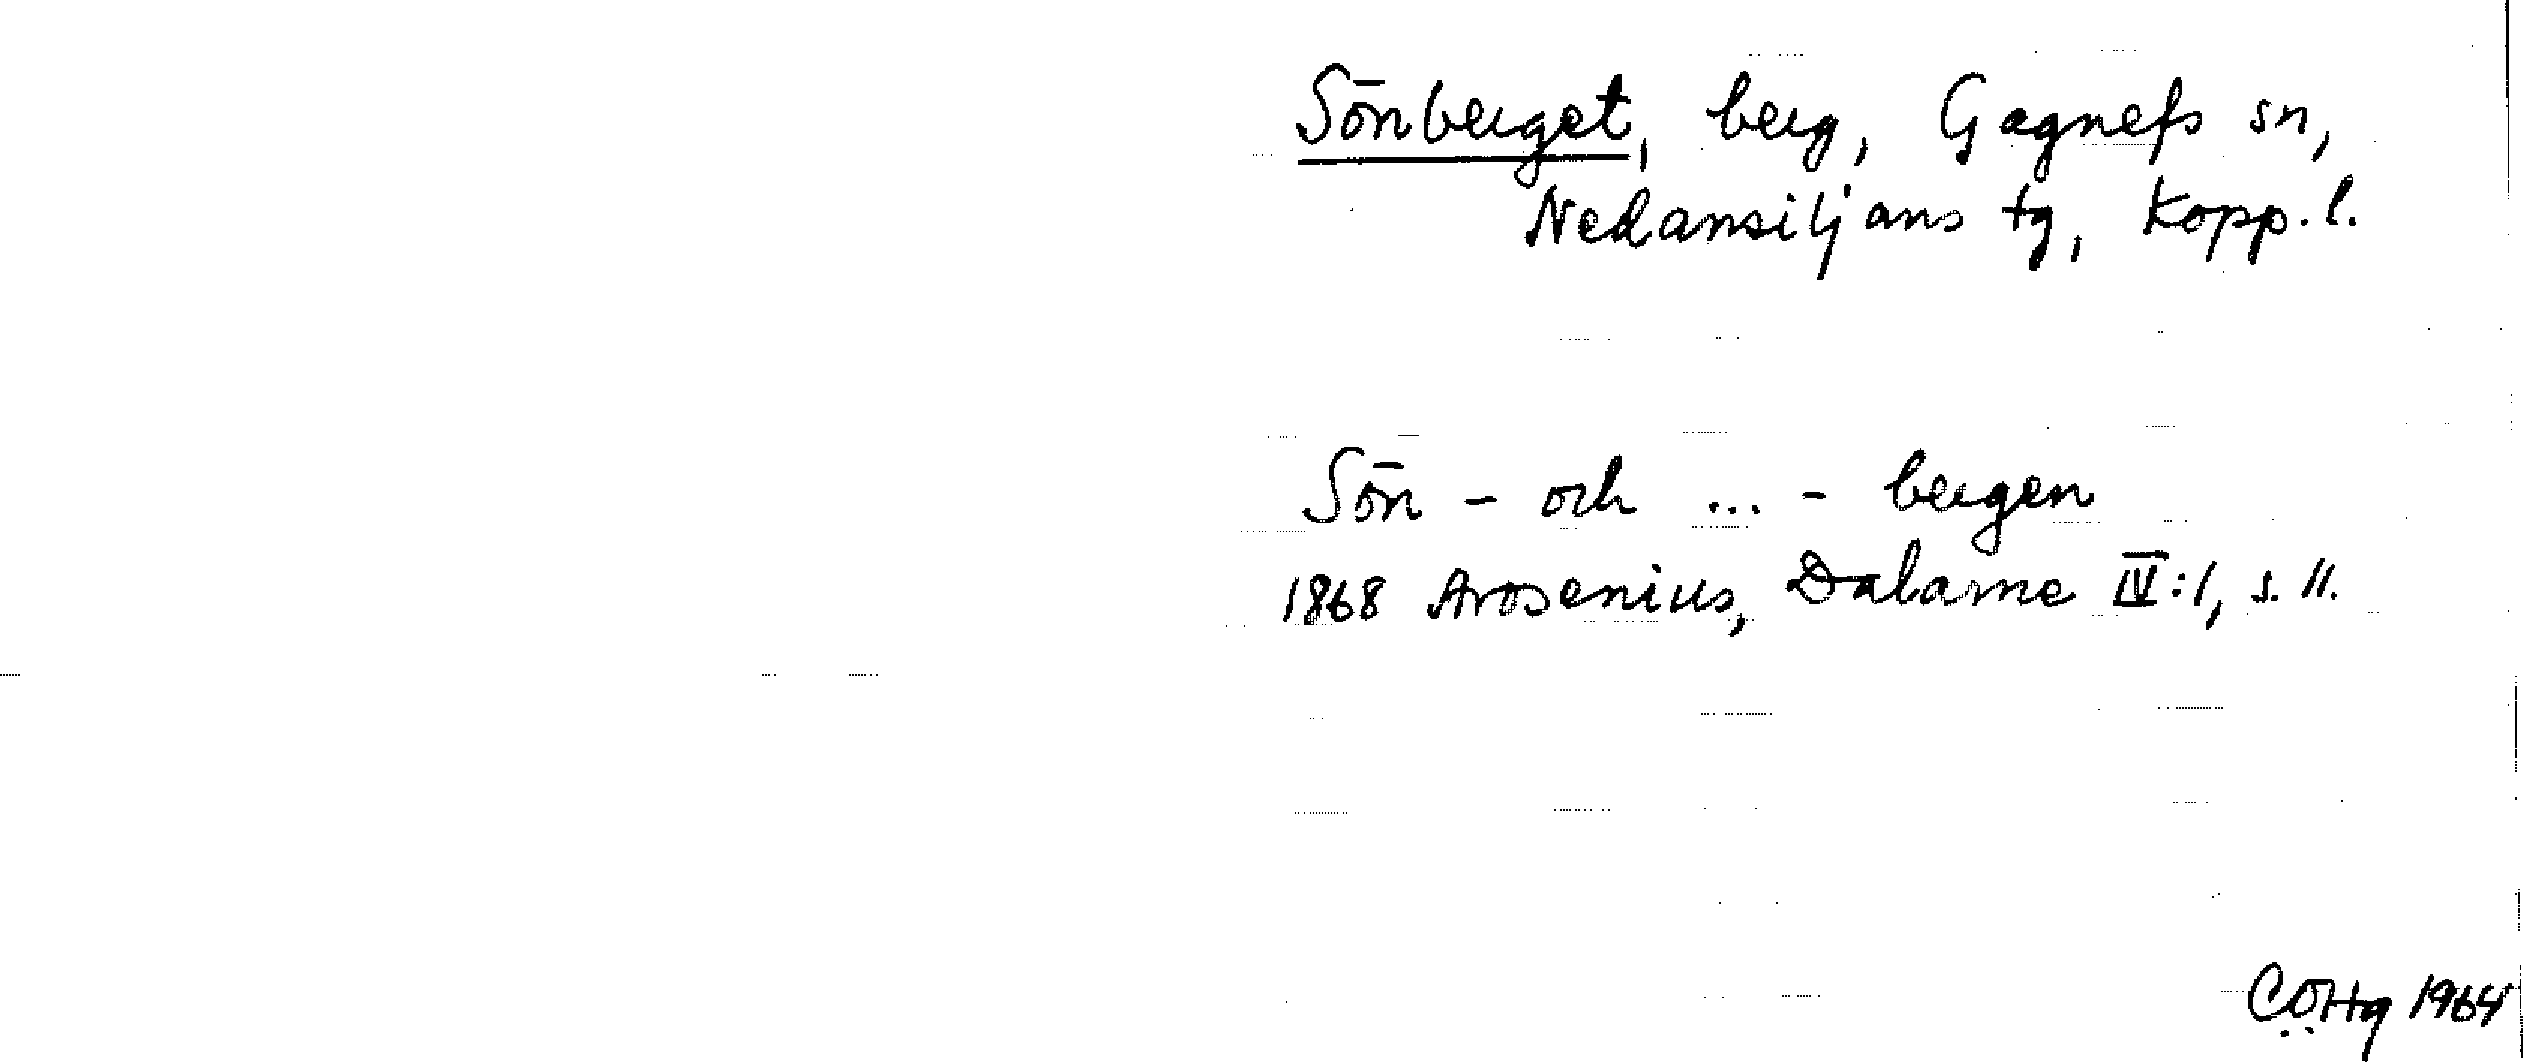 Sönberget, berg, Gagnefs sn,
Nedansiljans tg, Kopp. l.
Sön- och ...-bergen
1868 Arosenius, Dalarne IV:1, s. 11.
CÖHg 1964